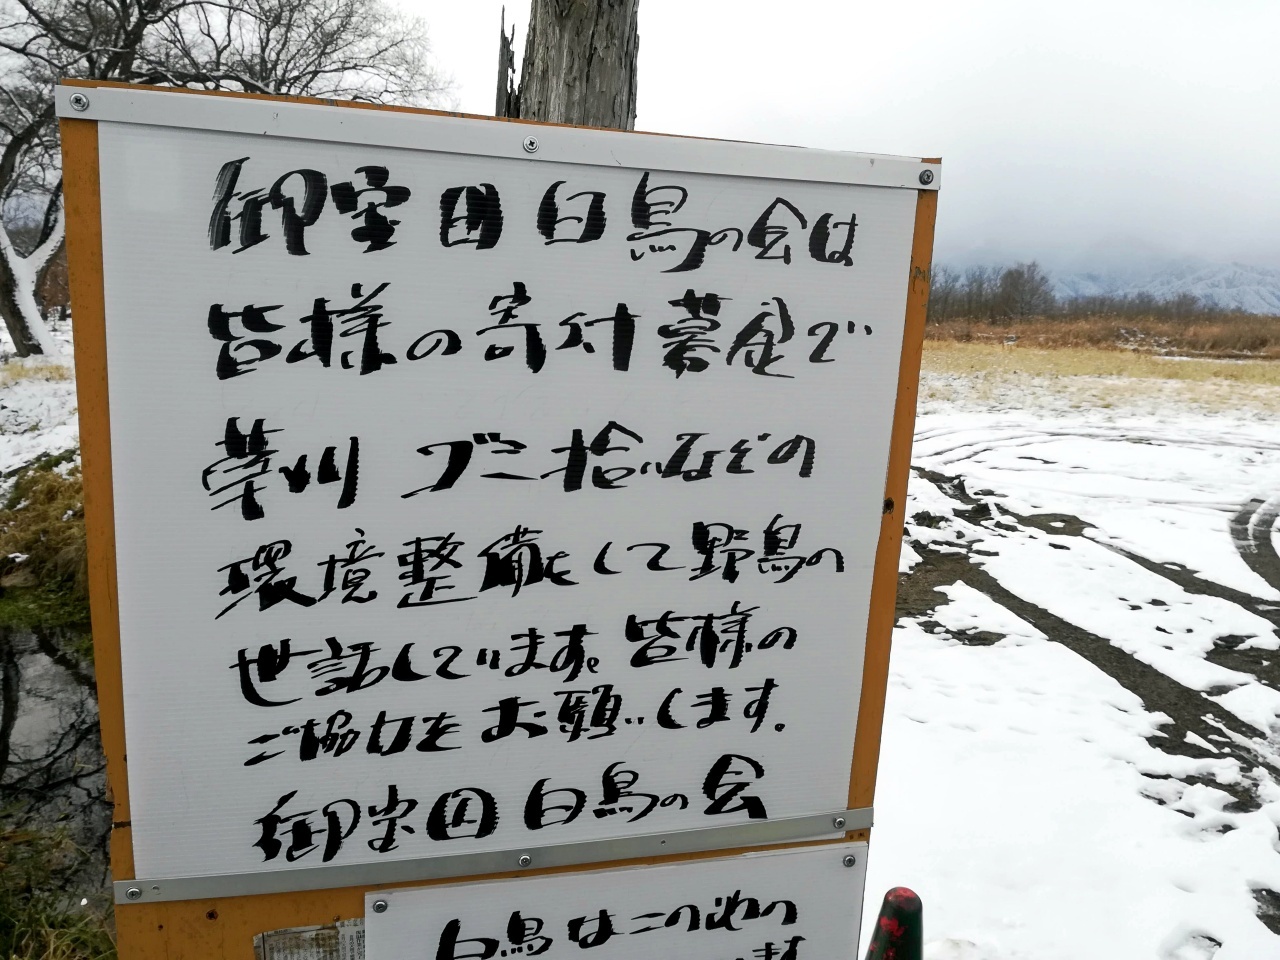 御宝田白鳥の会は
皆様の寄付募金で
草刈ゴミ拾いなどの
環境整備をして野鳥の
世話しています。皆様の
ご協力をお願いします。
御宝田白鳥の会
白鳥はこの池の